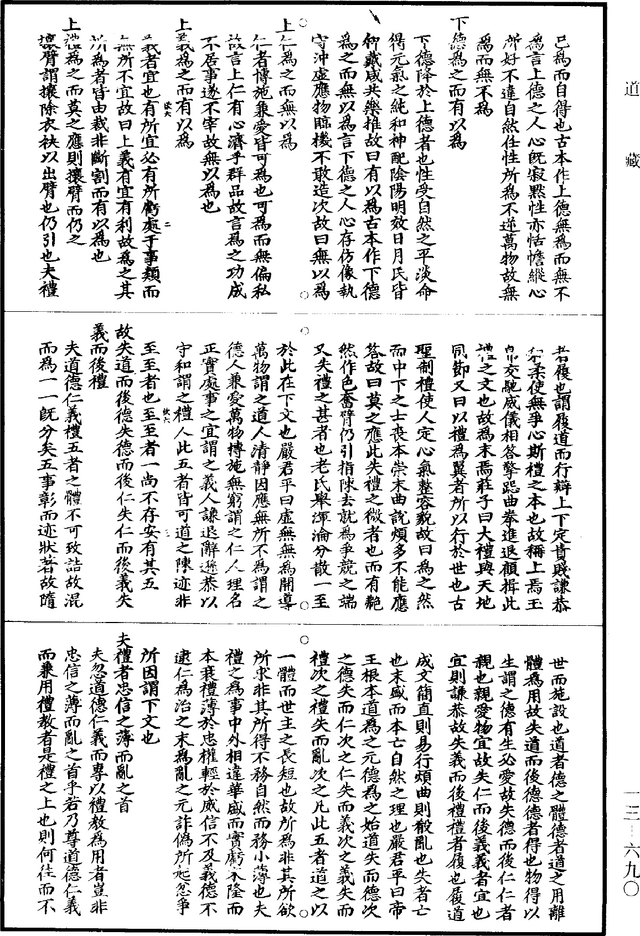 道藏
已為而自得也古本作上德無為而無不
為言上德之人心既寂默性亦恬憺縱心
所好不違自然任性所為不逆萬物故無
為而無不為
下德為之而有以為
下德降於上德者也性受自然之平淡命
得元氣之純和神配陰陽明效日月民皆
仰戴咸共樂推故曰有以為古本作下德
為之而無以為言下德之人心存仿像執
守沖虛應物臨機不敢造次故曰無以為
上仁為之而無以為
仁者博施兼愛皆可為也可為而無偏私
故言上仁有心濟乎群品故言為之功成
不居事遂不宰故無以為也
上義為之而有以為
義者宜也有所宜必有所虧處于事類而
無所不宜故曰上義有宜有利故為之其
所為者皆由裁非斷割而有以為也
上禮為之而莫之應則攘臂而仍之
攘臂謂攘除衣袂以出臂也仍引也夫禮
者履也謂履道而行辯上下定貴賤謙恭
和柔使無爭心斯禮之本也故稱上焉玉
帛交馳威儀相答擎跽曲拳進退顧揖此
禮之文也故為末焉莊子曰大禮與天地
同節又曰以禮為翼者所以行於世也古
聖制禮使人定心氣整容貌故曰為之然
而中下之士喪本崇末曲說煩多不能應
答故曰莫之應此失禮之微者也而有艴
然作色奮臂仍引指陳去就為爭競之端
又失禮之甚者也老氏舉渾淪分散一至
於此在下文也嚴君平曰虛無無為開導
萬物謂之道人清靜因應無所不為謂之
德人兼愛萬物博施無窮謂之仁人理名
正實處事之宜謂之義人謙退辭遜恭以
守和謂之禮人此五者皆可道之陳迹非
至至者也至至者一尚不存安有其五
故失道而後德失德而後仁失仁而後義失
義而後禮
夫道德仁義禮五者之體不可致詰故混
而為一一既分矣五事彰而迹狀著故隨
世而施設也道者德之體德者道之用離
體為用故失道而後德德者得也物得以
生謂之德有生必愛故失德而後仁仁者
親也親愛物宜故失仁而後義義者宜也
宜則謙恭故失義而後禮禮者履也履道
成文簡直則易行煩曲則散亂也失者亡
也末盛而本亡自然之理也嚴君平曰帝
王根本道為之元德為之始道失而德次
之德失而仁次之仁失而義次之義失而
禮次之禮失而亂次之凡此五者道之以
一體而世主之長短也故所為非其所欲
所求非其所得不務自然而務小薄也夫
禮之為事中外相違華盛而實虧末隆而
本衰禮薄於忠權輕於威信不及義德不
逮仁為治之末為亂之元詐偽所起忿爭
所因謂下文也
夫禮者忠信之薄而亂之首
夫忽道德仁義而專以禮教為用者豈非
忠信之薄而亂之首乎若乃尊道德仁義
而兼用禮教者是禮之上也則何往而不
一三－六九〇